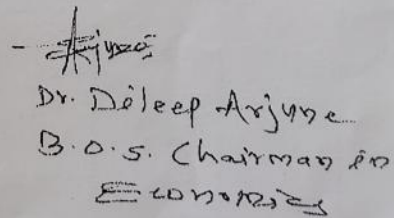 Arjune
Dr. Dileep Arjune
B.O.S. Chairman in
Economics